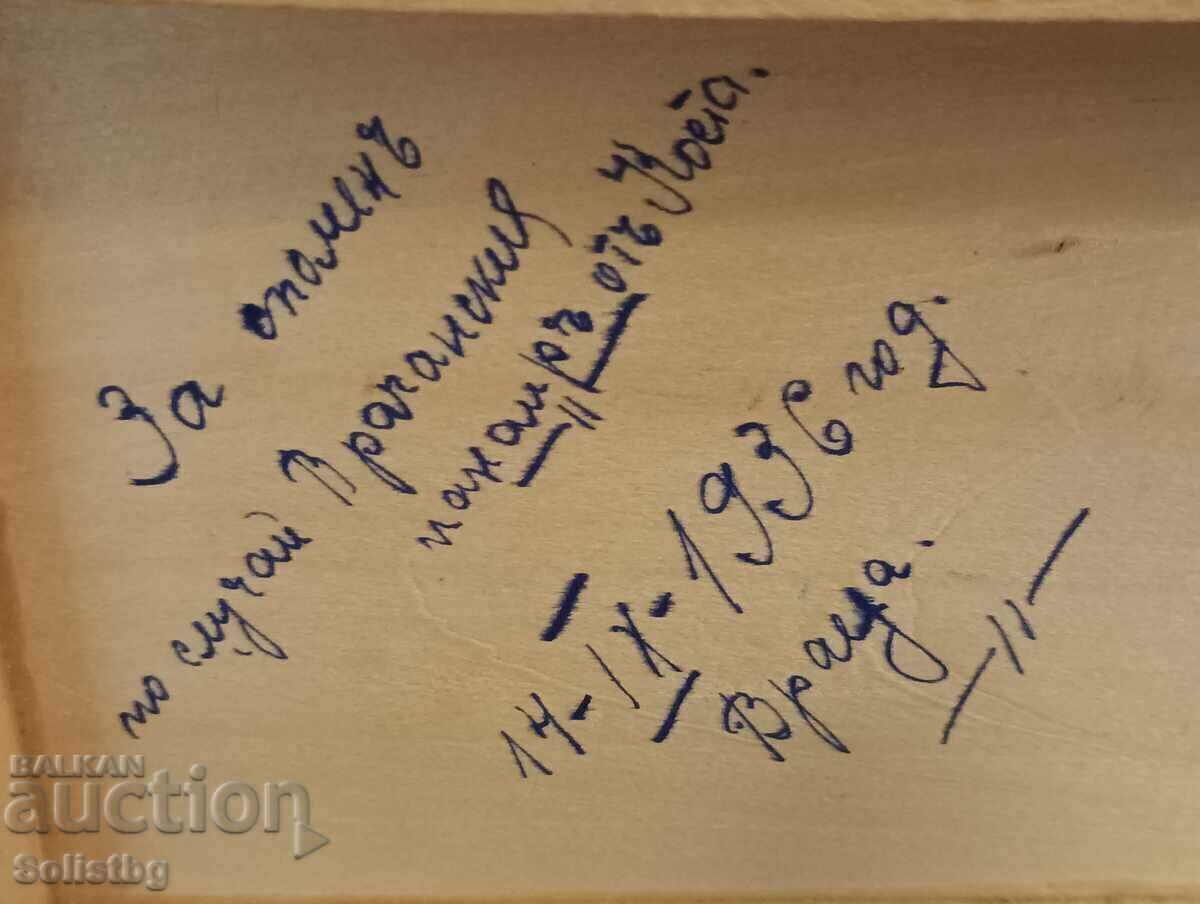 За споменъ
по случай Врачанския
панаиръ отъ Коста.
14-IX-1936 год.
Враца.
BALKAN
auction
Solistbg